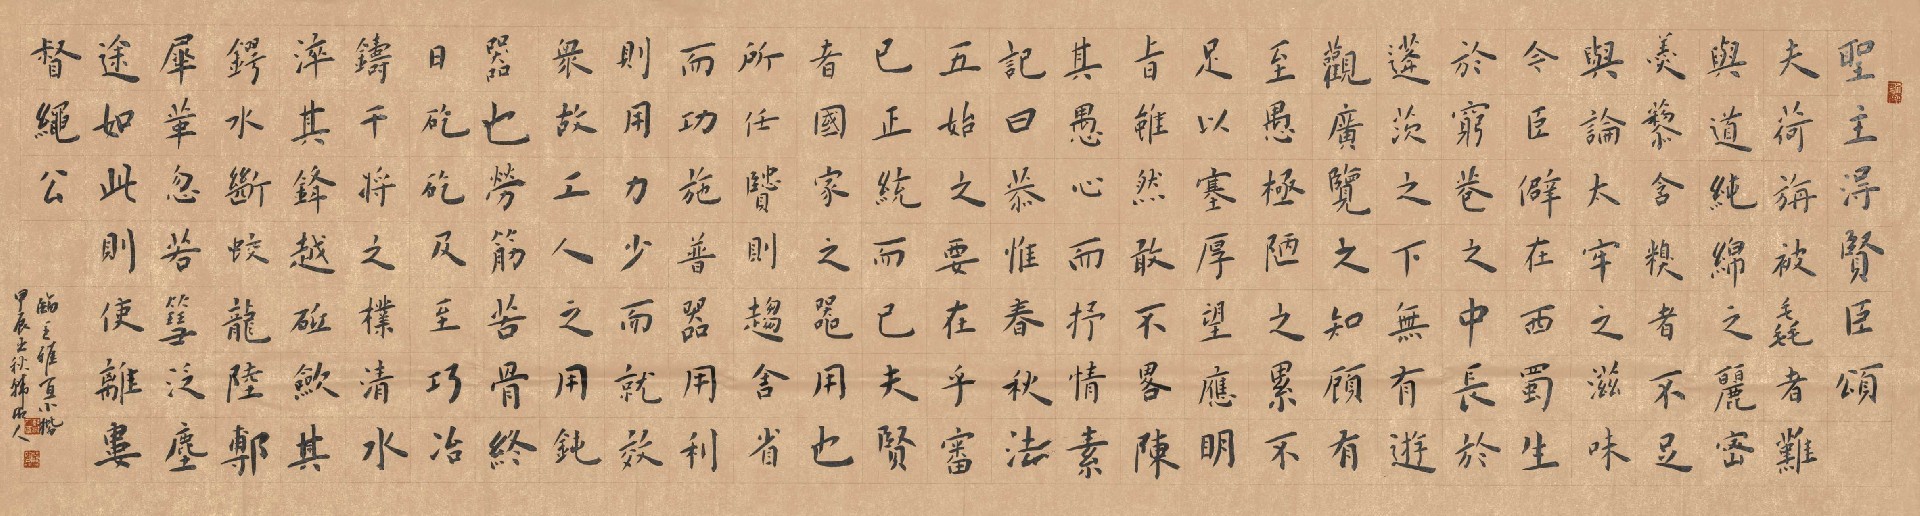 聖主淂賢臣頌
夫荷旃被毳者難
與道純綿之麗密
羹藜含糗者不足
與論太牢之滋味
今臣僻在西蜀生
於窮巷之中長於
蓬茨之下無有遊
觀廣覽之知顧有
至愚極陋之累不
足以塞厚望應明
旨雖然敢不畧陳
其愚心而抒情素
記曰恭惟春秋法
五始之要在乎審
已正統而已夫賢
者國家之器用也
所任賢則趨舍省
而功施普器用利
則用力少而就效
衆故工人之用鈍
器也勞筋苦骨終
日矻矻及至巧冶
鑄干将之樸清水
淬其鋒越砥斂其
鍔水斷蛟龍陸剸
犀革忽若篲泛塵
途如此則使離婁
督繩公
臨王雅宜小楷
甲辰之秋